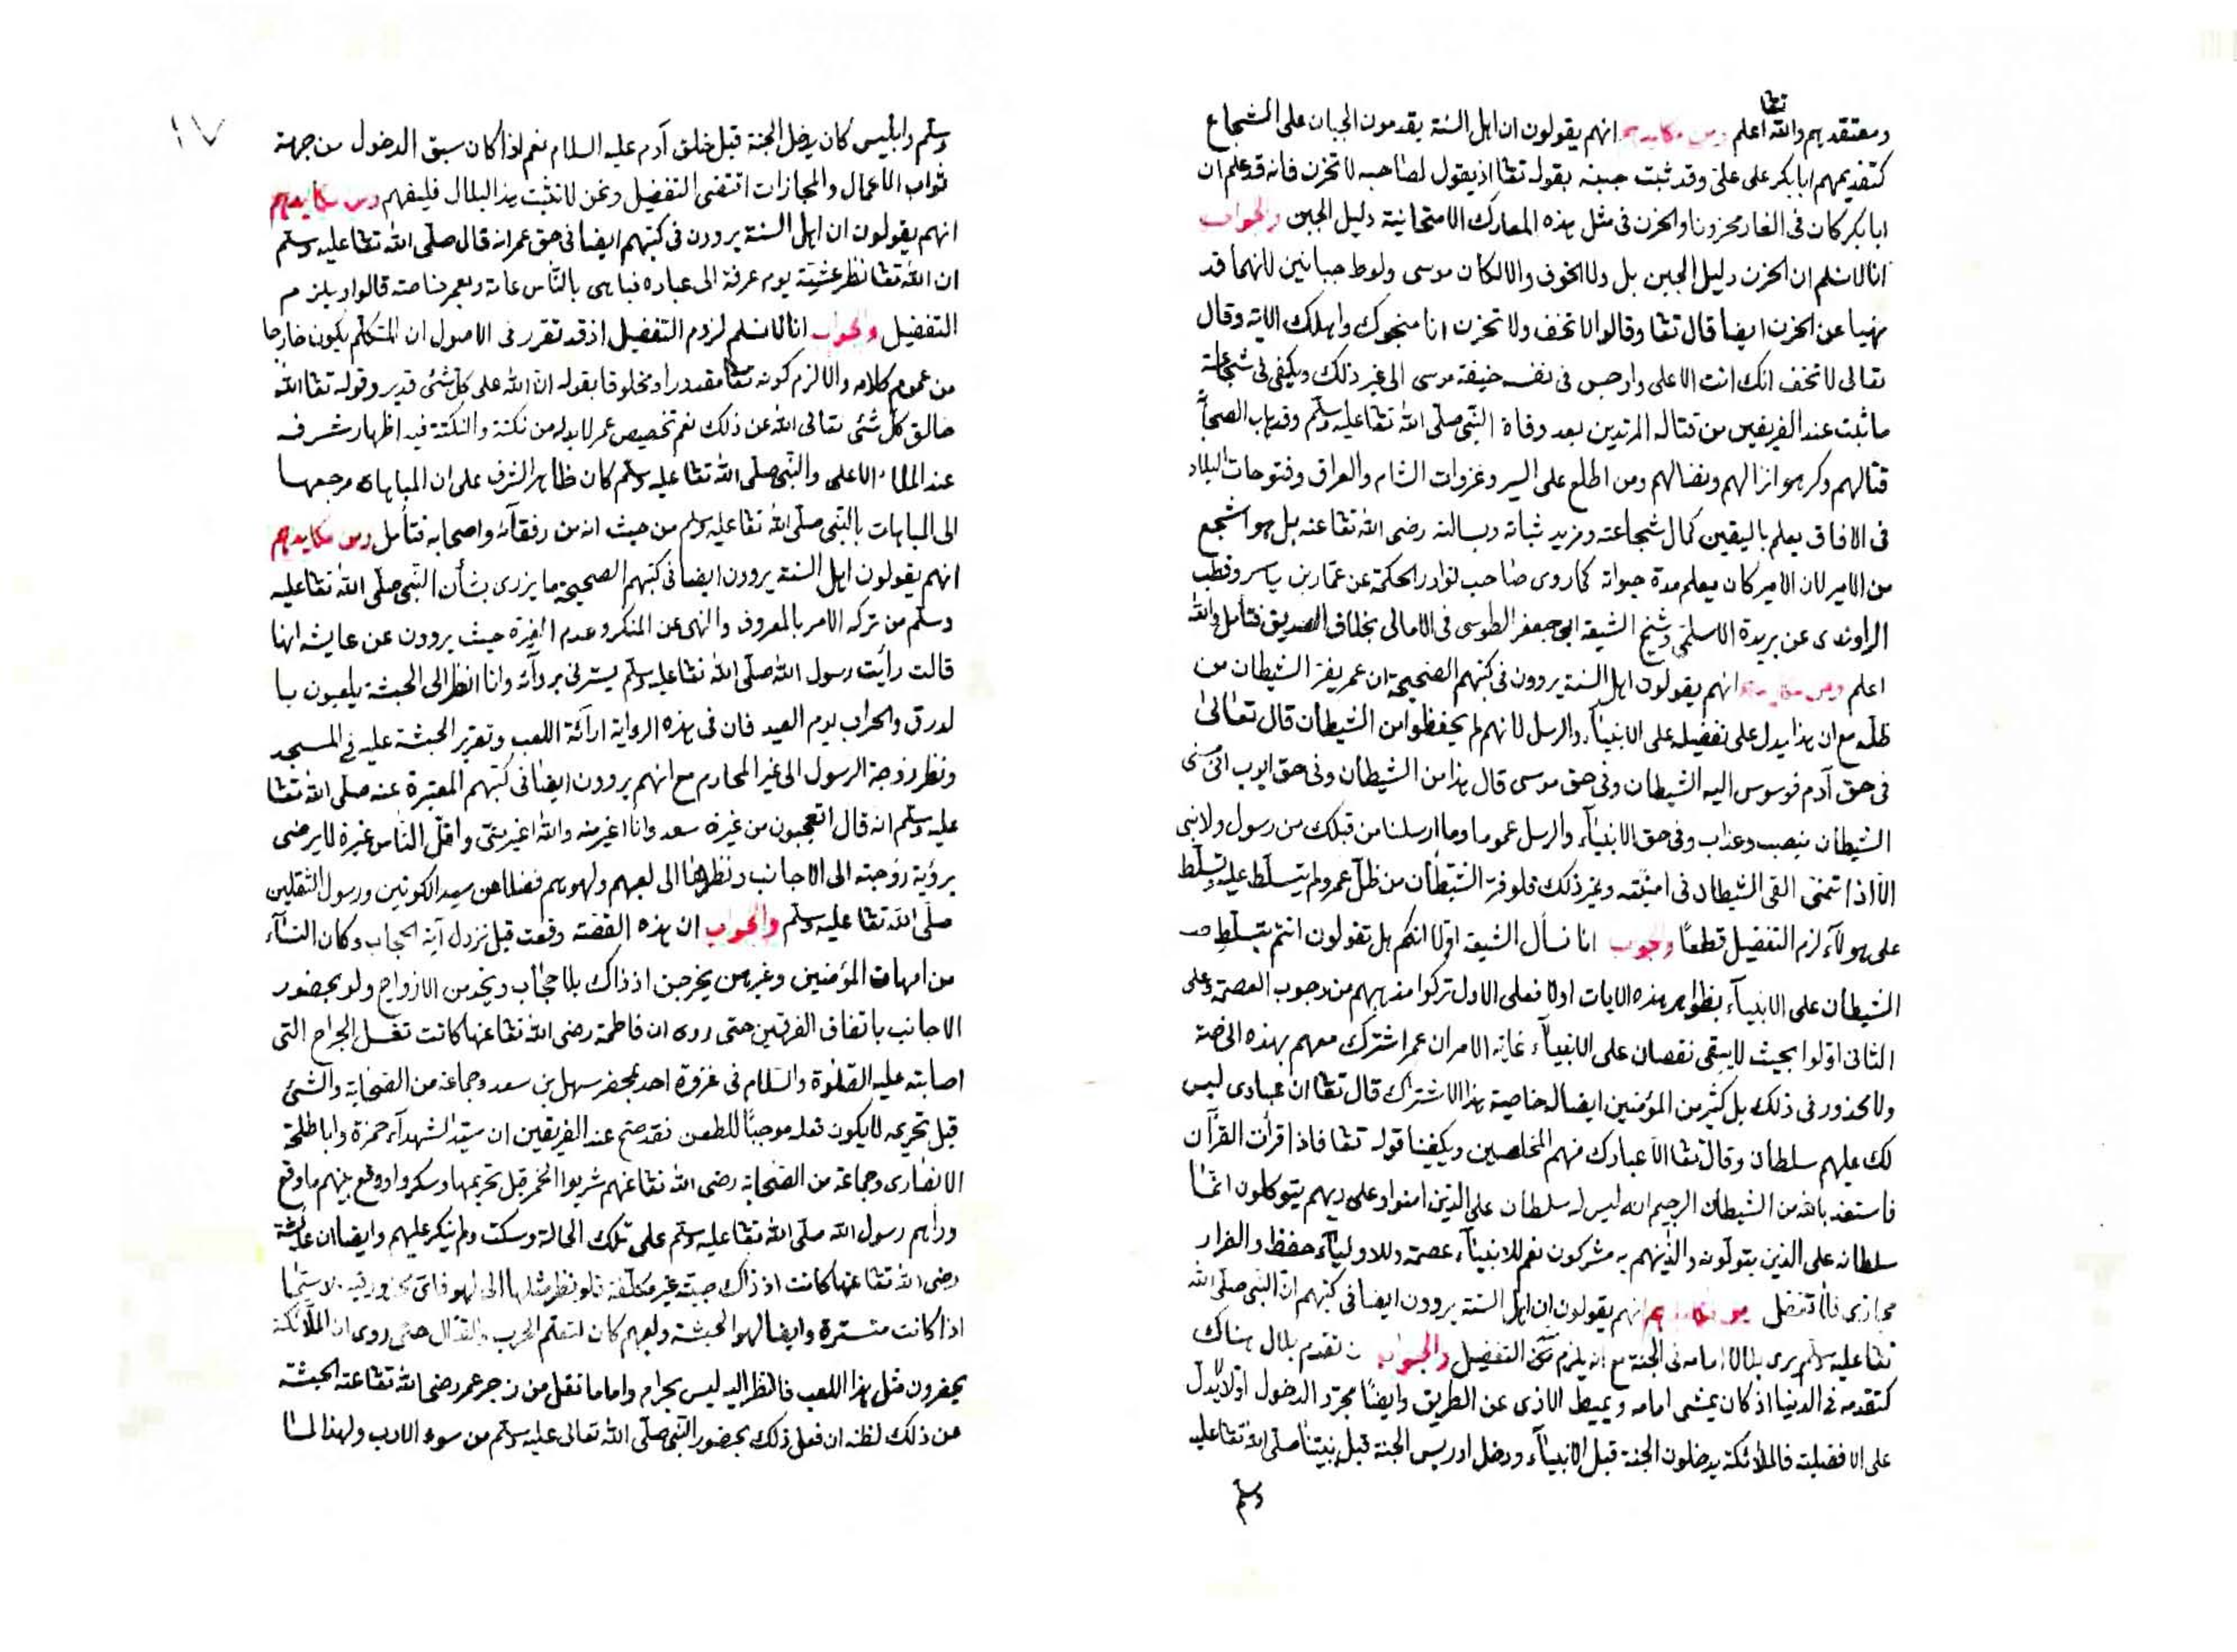 ومعتقدهم والله تعا اعلم ومن مكايدهم انهم يقولون ان اهل السنة يقدمون الجبان على الشجاع
كتقديمهم ابا بكر على على وقد ثبت جبنه بقوله تعا اذ يقول لصاحبه لا تحزن فانه قد علم ان
ابا بكر كان في الغار محزونا والحزن في مثل هذه المعارك الامتحانية دليل الجبن والجواب
انا لا نسلم ان الحزن دليل الجبن بل ولا الخوف والا لكان موسى ولوط جبانين لانهما قد
نهيا عن الحزن ايضا قال تعا وقالوا لا تخف ولا تحزن انا منجوك واهلك الاية وقال
تعالى لا تخف انك انت الاعلى واوجس في نفسه خيفة موسى الى غير ذلك ويكفى في شجاعته
ما ثبت عند الفريقين من قتاله المرتدين بعد وفاة النبى صلى الله تعا عليه وسلم وقد هاب الصحابة
قتالهم وكرهوا نزالهم ونضالهم ومن اطلع على السير وغزوات الشام والعراق وفتوحات البلاد
في الافاق يعلم باليقين كمال شجاعته ومزيد ثباته وبسالته رضى الله تعا عنه بل هو اشجع
من الامير لان الامير كان يعلم مدة حيوته كما روى صاحب نوادر الحكمة عن عمار بن ياسر وقطب
الراوندى عن بريدة الاسلمى وشيخ الشيعة ابى جعفر الطوسى في الامالى بخلاف الصديق فتأمل والله
اعلم ومن مكايدهم انهم يقولون اهل السنة يروون في كتبهم الصحيحة ان عمر يفر الشيطان من
ظله مع ان هذا يدل على تفضيله على الانبياء والرسل لانهم لم يحفظوا من الشيطان قال تعالى
في حق آدم فوسوس اليه الشيطان وفى حق موسى قال هذا من الشيطان وفى حق ايوب انى مسنى
الشيطان بنصب وعذاب وفى حق الانبياء والرسل عموما وما ارسلنا من قبلك من رسول ولا نبى
الا اذا تمنى القى الشيطان فى امنيته وغير ذلك فلو فر الشيطان من ظل عمر ولم يتسلط عليه وتسلط
على هولآء لزم التفضيل قطعا والجواب انا نسأل الشيعة اولا انكم هل تقولون انتم بتسلط
الشيطان على الانبيآء بظواهر هذه الايات اولا فعلى الاول تركوا مذهبهم من وجوب العصمة وعلى
الثانى اولوا بحيث لا يبقى نقصان على الانبيآء غاية الامر ان عمر اشترك معهم بهذه الخاصة
ولا محذور فى ذلك بل كثير من المؤمنين ايضا له خاصية هذا الاشتراك قال تعا ان عبادى ليس
لك عليهم سلطان وقال تعا الا عبادك منهم المخلصين ويكفينا قوله تعا فاذا قرأت القرآن
فاستعذ بالله من الشيطان الرجيم انه ليس له سلطان على الذين امنوا وعلى ربهم يتوكلون انما
سلطانه على الذين يتولونه والذينهم به مشركون نعم للانبيآء عصمة وللاوليآء حفظ والفرار
مجازى فلا تفضل ومن مكايدهم انهم يقولون ان اهل السنة يروون ايضا في كتبهم ان النبى صلى الله
تعا عليه وسلم يرى بلالا امامه فى الجنة مع انه يلزم التفضيل والجواب ان تقدم بلال هناك
كتقدمه فى الدنيا اذ كان يمشى امامه ويميط الاذى عن الطريق وايضا مجرد الدخول اولا لا يدل
على الافضلية فالملائكة يدخلون الجنة قبل الانبيآء ودخل ادريس الجنة قبل نبينا صلى الله تعا عليه
وسلم
١٧
وسلم وابليس كان يدخل الجنة قبل خلق آدم عليه السلام نعم اذا كان سبق الدخول من جهة
ثواب الاعمال والمجازات اقتضى التفضيل ونحن لا نثبت هذا لبلال فليفهم ومن مكايدهم
انهم يقولون ان اهل السنة يروون فى كتبهم ايضا فى حق عمر انه قال صلى الله تعا عليه وسلم
ان الله تعا نظر عشية يوم عرفة الى عباده فباهى بالناس عامة وبعمر خاصة قالوا ويلزم
التفضيل والجواب انا لا نسلم لزوم التفضيل اذ قد تقرر فى الاصول ان المتكلم يكون خارجا
من عموم كلامه والا لزم كونه تعا مقدورا ومخلوقا بقوله ان الله على كل شئ قدير وقوله تعا الله
خالق كل شئ تعالى الله عن ذلك نعم تخصيص عمر لا بد له من نكتة والنكتة فيه اظهار شرفه
عند الملاء الاعلى والنبى صلى الله تعا عليه وسلم كان ظاهر الشرف على ان المباهاة مرجعها
الى المباهات بالنبى صلى الله تعا عليه وسلم من حيث انه من رفقآئه واصحابه فتأمل ومن مكايدهم
انهم يقولون اهل السنة يروون ايضا فى كتبهم الصحيحة ما يزرى بشأن النبى صلى الله تعا عليه
وسلم من تركه الامر بالمعروف والنهى عن المنكر وعدم الغيرة حيث يروون عن عايشة انها
قالت رأيت رسول الله صلى الله تعا عليه وسلم يسترنى بردآئه وانا انظر الى الحبشة يلعبون با
لدرق والحراب يوم العيد فان فى هذه الرواية ارآئة اللعب وتقرير الحبشة عليه فى المسجد
ونظر زوجة الرسول الى غير المحارم مع انهم يروون ايضا فى كتبهم المعتبرة عنه صلى الله تعا
عليه وسلم انه قال اتعجبون من غيرة سعد وانا اغير منه والله اغير منى واقل الناس غيرة لا يرضى
برؤية زوجته الى الاجانب ونظرها الى لعبهم ولهوهم فضلا عن سيد الكونين ورسول الثقلين
صلى الله تعا عليه وسلم والجواب ان هذه القصة وقعت قبل نزول آية الحجاب وكان النسآء
من امهات المؤمنين وغيرهن يخرجن اذ ذاك بلا حجاب ويخدمن الازواج ولو بحضور
الاجانب باتفاق الفرقتين حتى روى ان فاطمة رضى الله تعا عنها كانت تغسل الجراح التى
اصابته عليه الصلوة والسلام فى غزوة احد بمحضر سهل بن سعد وجماعة من الصحابة والشئ
قبل تحريمه لا يكون فعله موجبا للطعن فقد صح عند الفريقين ان سيد الشهدآء حمزة وابا طلحة
الانصارى وجماعة من الصحابة رضى الله تعا عنهم شربوا الخمر قبل تحريمها وسكروا ووقع بينهم ما وقع
ورأهم رسول الله صلى الله تعا عليه وسلم على تلك الحالة وسكت ولم ينكر عليهم وايضا ان عايشة
رضى الله تعا عنها كانت اذ ذاك صبية غير مكلفة فلو نظر مثلها الى لهو فاى محذور فيه لا سيما
اذا كانت متسترة وايضا لهو الحبشة ولعبهم كان لتعلم الحرب والقتال حتى روى ان الملآئكة
يحضرون مثل هذا اللعب فالنظر اليه ليس بحرام واما ما نقل من زجر عمر رضى الله تعا عنه الحبشة
من ذلك لظنه ان فعل ذلك بحضور النبى صلى الله تعالى عليه وسلم من سوء الادب ولهذا لما